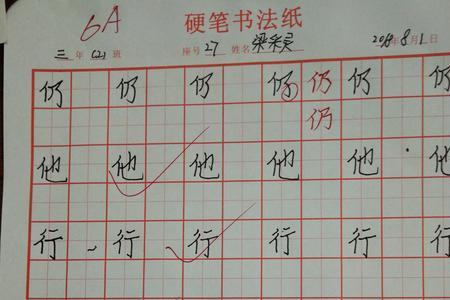 6A
硬笔书法纸
三年(2)班 座号27 姓名 2018年8月1日
仍 仍 仍 仍 仍 仍 仍
仍
他 他 他 他 他 他
行 行 行 行 行 行